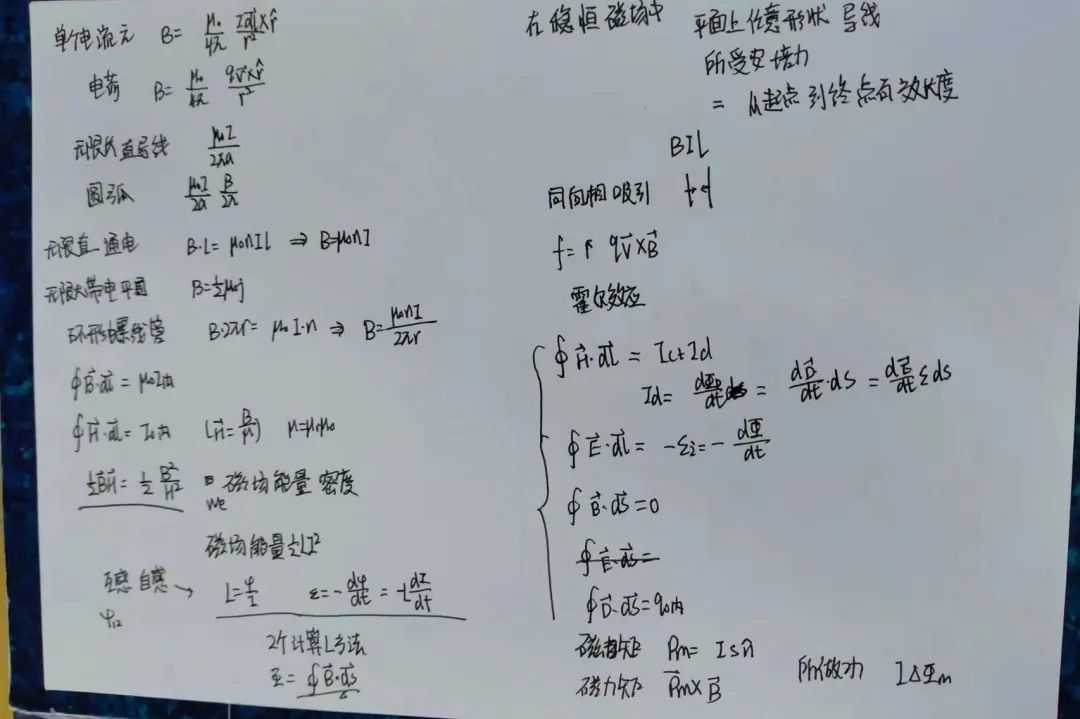 单个电流元 B= μ₀/4π Id\vec{l}×\hat{r}/r²
电荷 B= μ₀/4π q\vec{v}×\hat{r}/r²
无限长直导线 μ₀I/2πa
圆弧 μ₀I/2a β/2π
无限直 通电 B·L= μ₀nIL ⇒ B=μ₀nI
无限大带电平面 B=½μ₀j
环形螺线管 B·2πr= μ₀I·n ⇒ B= μ₀nI/2πr
∮\vec{B}·\vec{dl} = μ₀I内
∮\vec{H}·\vec{dl}= I₀内 (\vec{H}= B/μ) μ=μᵣμ₀
½BH= ½ B²/H² = 磁场能量密度
We
磁场能量½LI²
互感 自感 → L= ψ/I ε=- dψ/dt = -L dI/dt
ψ₁₂
2个计算L方法
Φ= ∮\vec{B}·\vec{ds}
在稳恒磁场中 平面上任意形状 导线
所受安培力
= 从起点到终点有效长度
BIL
同向相吸引
f= q\vec{v}×\vec{B}
霍尔效应
∮\vec{H}·\vec{dl} = Ic+Id
Id= dΦ_D/dt = d\vec{D}/dt·ds = d\vec{E}/dt ε ds
∮\vec{E}·\vec{dl} = -εi=- dΦ/dt
∮\vec{B}·\vec{ds}=0
∮\vec{E}·\vec{ds}=
∮\vec{D}·\vec{ds}=q₀内
磁矩 Pm= IS\vec{n}
磁力矩 \vec{P}m×\vec{B} 所做功 IΔΦm